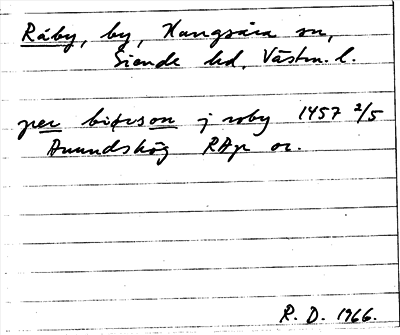 Råby, by, Kungsåra sn,
Siende hd, Västm. l.
per birsson j roby 1457 2/5
Anundshög RAp or.
R. D. 1966.